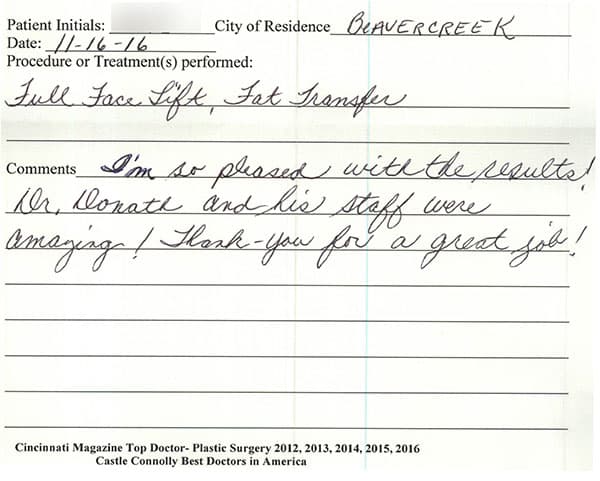 Patient Initials: City of Residence BEAVERCREEK
Date: 11-16-16
Procedure or Treatment(s) performed:
Full Face Lift, Fat Transfer
Comments I'm so pleased with the results!
Dr. Donath and his staff were
amazing! Thank-you for a great job!
Cincinnati Magazine Top Doctor- Plastic Surgery 2012, 2013, 2014, 2015, 2016
Castle Connolly Best Doctors in America